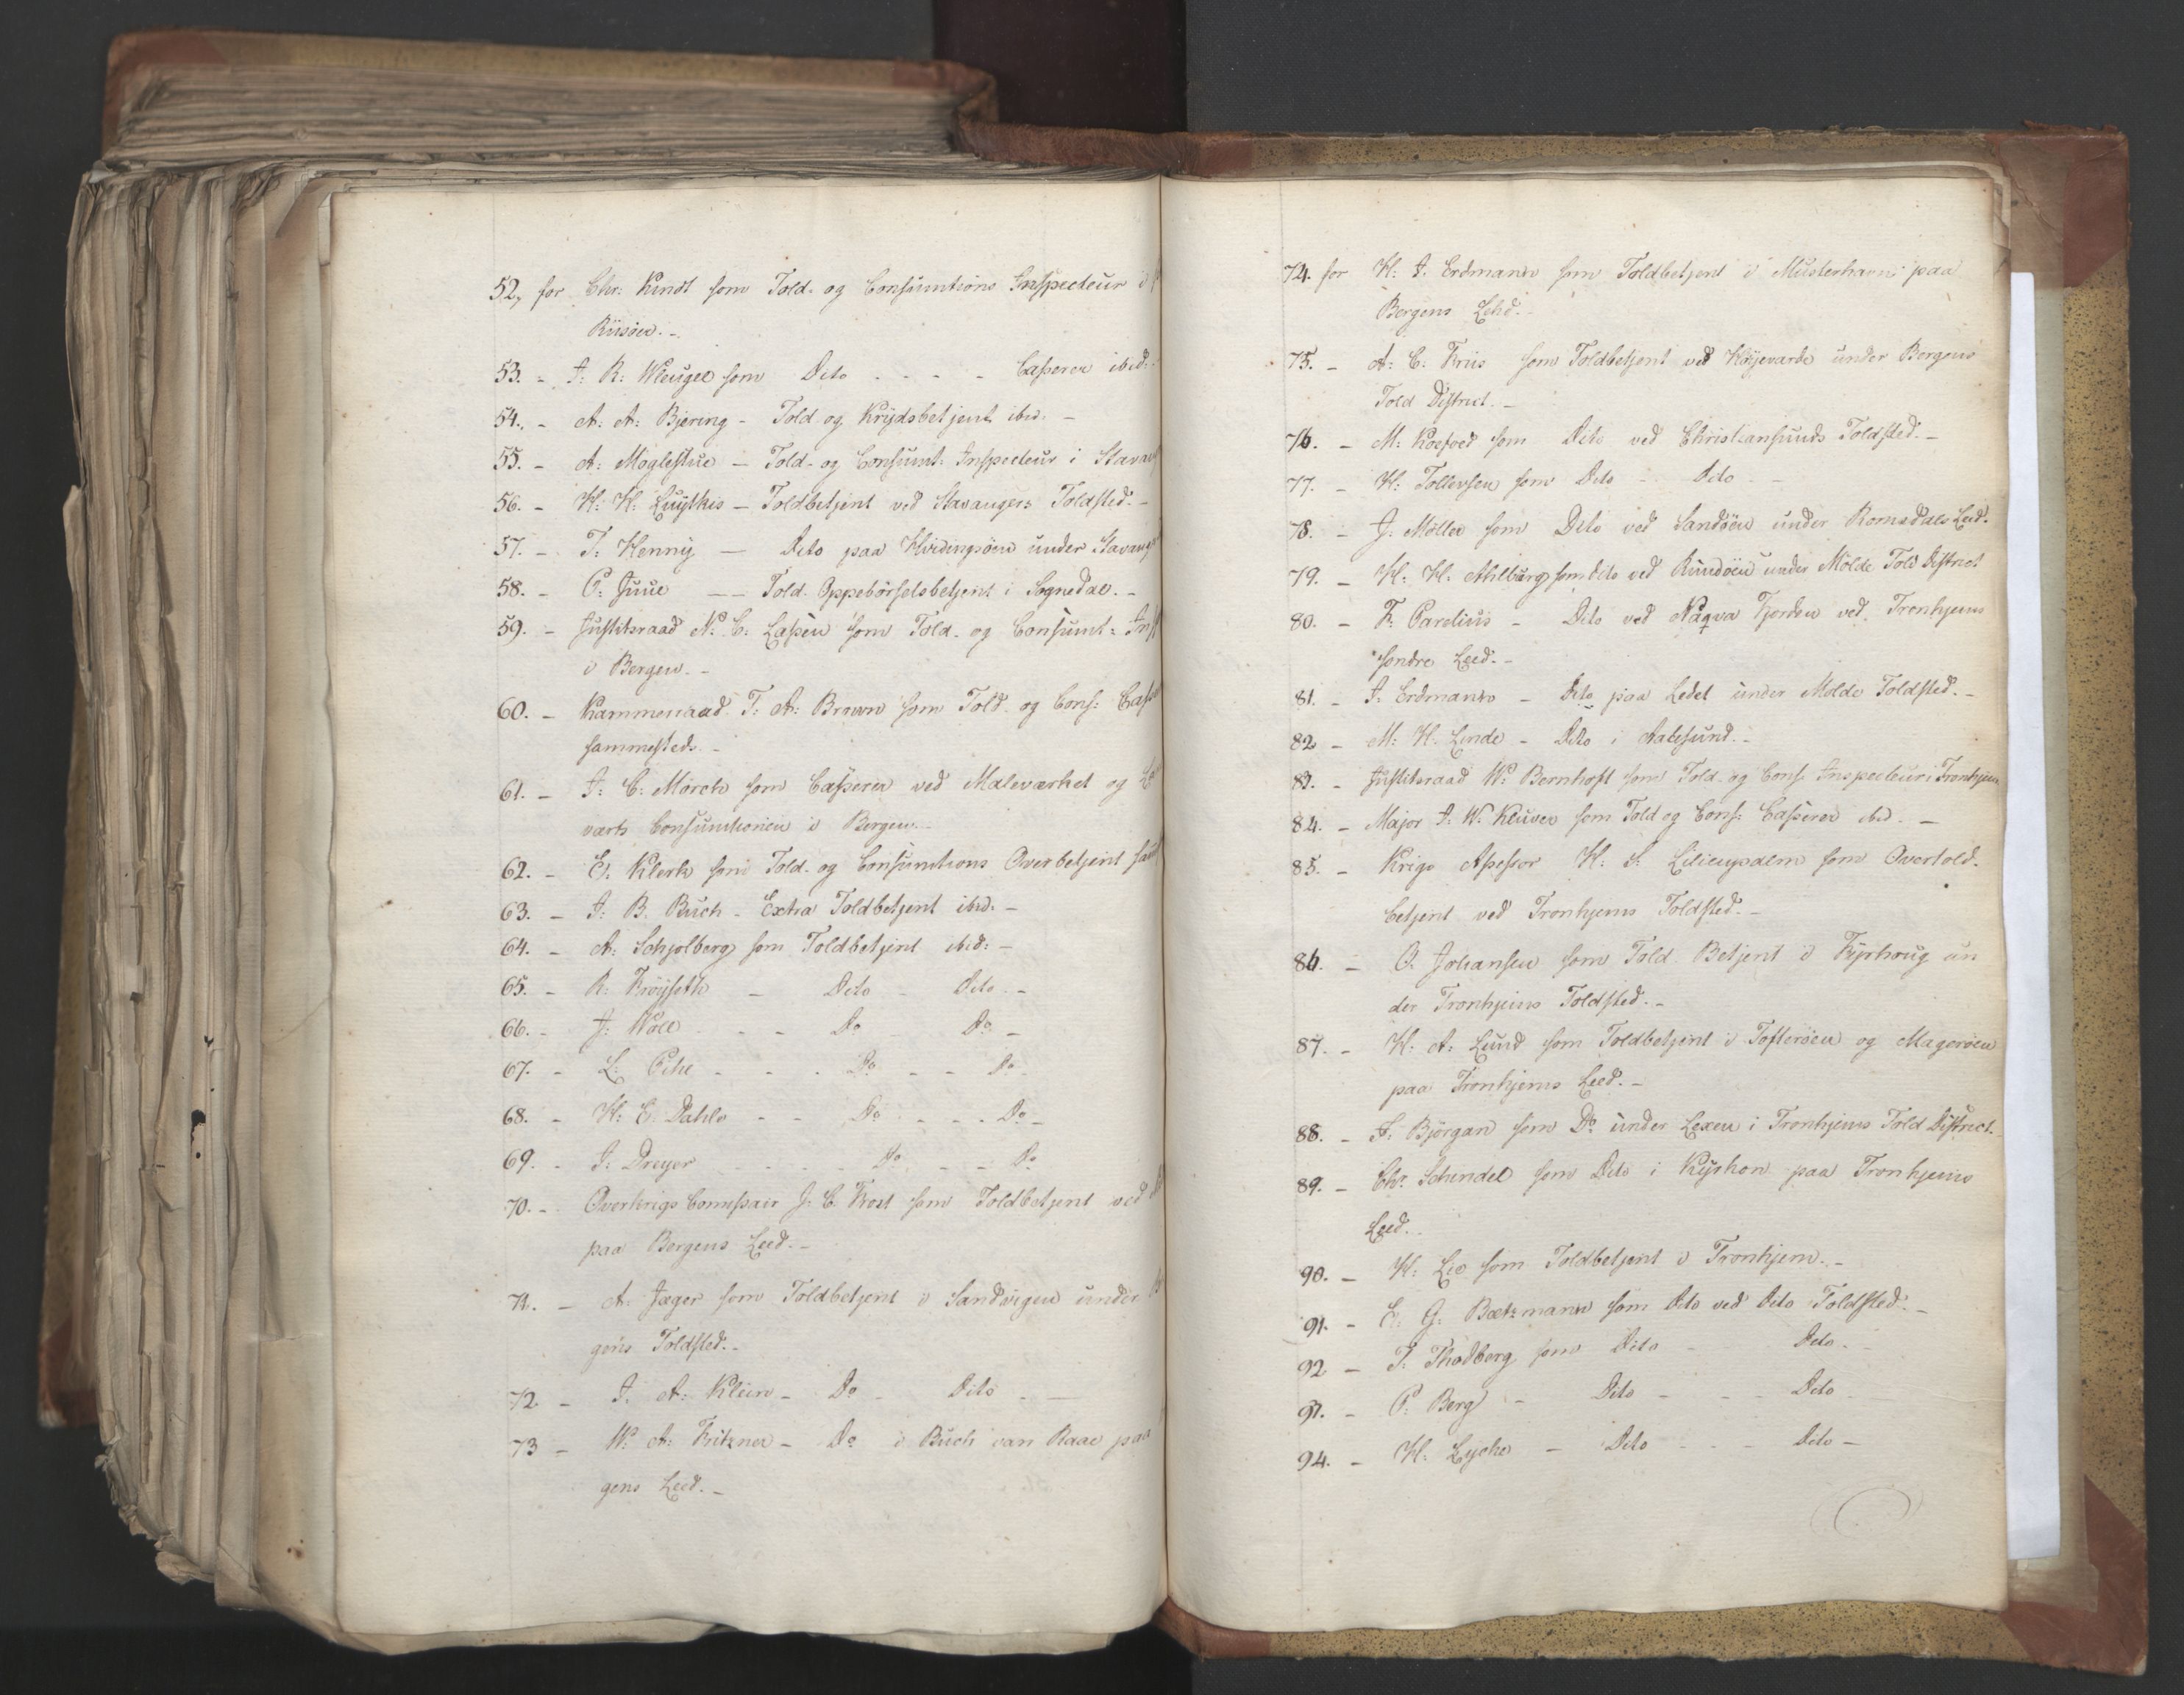 52, for Chr: Kindt som Told- og Consumtions Inspecteur i
Riisöer. -
53. - J: R: Wleugel som Dito - - - - Casserer ibid:
54. - A: A: Bjering - Told- og Krydsbetjent ibid. -
55. - A: Moglestue - Told- og Consumt: Inspecteur i
56. - H: H: Luytkis - Toldbetjent ved Stavangers Toldsted. -
57. - T: Henny - Dito paa Hvidingsöen under
58. - P: Juul - - Told- Oppebörselsbetjent i Sognedal. -
59. - Justitsraad N: C: Lassen som Told- og Consumt:
i Bergen. -
60. - Kammerraad T: A: Bruun som Told- og Cons:
sammesteds. -
61. - J: C: Mörch som Casserer ved Maleværket og
værts Consumtionen i Bergen. -
62. - E: Klerk som Told- og Consumtions Overbetjent
63. - J: B: Buch - Extra Toldbetjent ibid: -
64. - A: Schjolberg som Toldbetjent ibid: -
65. - R: Fröyseth - Dito - Dito. -
66. - J: Wall - - Do Do -
67. - L: Pihl - - - Do - - Do -
68. - H: E: Dahl - - Do - - - Do -
69. - J: Dreyer - - - - Do - - Do
70. - Overkrigs Commssair J: C: Frost som Toldbetjent ved
paa Bergens Leed. -
71. - A: Jæger som Toldbetjent i Sandvigen under
gens Toldsted. -
72 - J. A: Klein - Do - Dito - -
73 - W: A: Fritzner - Do i Buch van Raae paa
gens Leed. -
74. for H: J: Erdmann som Toldbetjent i Musterhavn paa
Bergens Lehd. -
75. - A: C: Friis som Toldbetjent ved Höyevarde under Bergens
Told District. -
76. - M: Koefoed som Dito ved Christiansunds Toldsted. -
77. - H: Tollevsen som Dito - Dito - -
78. - J: Möller som Dito ved Sandöen under Romsdals Leed.
79. - H: H: Ahlburg som dito ved Rundöen under Molde Told District
80. - F: Parelius - Dito ved Fjorden ved Tronhjems
söndre Leed. -
81. - J: Erdmann - Dito paa Ledet under Molde Toldsted. -
82. - M: H: Linde - Dito i Aalesund. -
83. - Justitsraad W: Bernhoft som Told- og Cons: Inspecteur i Tronhjem
84. - Major J: W: Kluver som Told og Cons: Casserer ibid. -
85. - Krigs Assessor H: S: Lilienpalm som Overtold-
betjent ved Tronhjems Toldsted. -
86. - O: Johansen som Told Betjent i Fyrhoug un
der Tronhjems Toldsted. -
87. - H: A: Lund som Toldbetjent i Tofteröen og Mageröen
paa Tronhjems Leed. -
88. - J: Björgan som Do under Lexen i Tronhjems Told District. -
89. - Chr: Schindel som Dito i paa Tronhjems
Leed. -
90. - H: Lie som Toldbetjent i Tronhjem. -
91. - E: G: Bætzmann som Dito ved Dito Toldsted. -
92 - J: Thodberg som Dito - Dito. -
93. - P: Berg - Dito - - - Dito -
94. - H: Lyche - Dito - - - Dito -